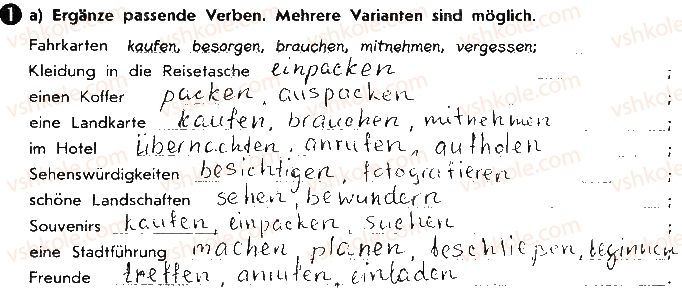 1 a) Ergänze passende Verben. Mehrere Varianten sind möglich.
Fahrkarten kaufen, besorgen, brauchen, mitnehmen, vergessen;
Kleidung in die Reisetasche einpacken ;
einen Koffer packen, auspacken ;
eine Landkarte kaufen, brauchen, mitnehmen ;
im Hotel übernachten, anrufen, aufholen ;
Sehenswürdigkeiten besichtigen, fotografieren ;
schöne Landschaften sehen, bewundern ;
Souvenirs kaufen, einpacken, suchen ;
eine Stadtführung machen, planen, beschließen, beginnen
Freunde treffen, anrufen, einladen ;